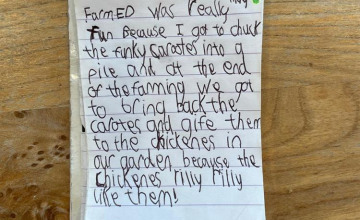 FarmED was really
fun Because I got to chuck
the funky carotes into a
pile and at the end
of the farming we got
to bring back the
carotes and gife them
to the chickenes in
our garden because the
chickenes rilly rilly
like them!